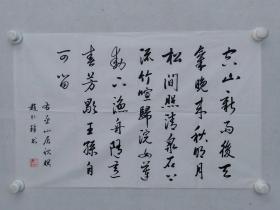 空山新雨後天
氣晚来秋明月
松間照清泉石上
流竹喧歸浣女蓮
動下漁舟隨意
春芳歇王孫自
可留